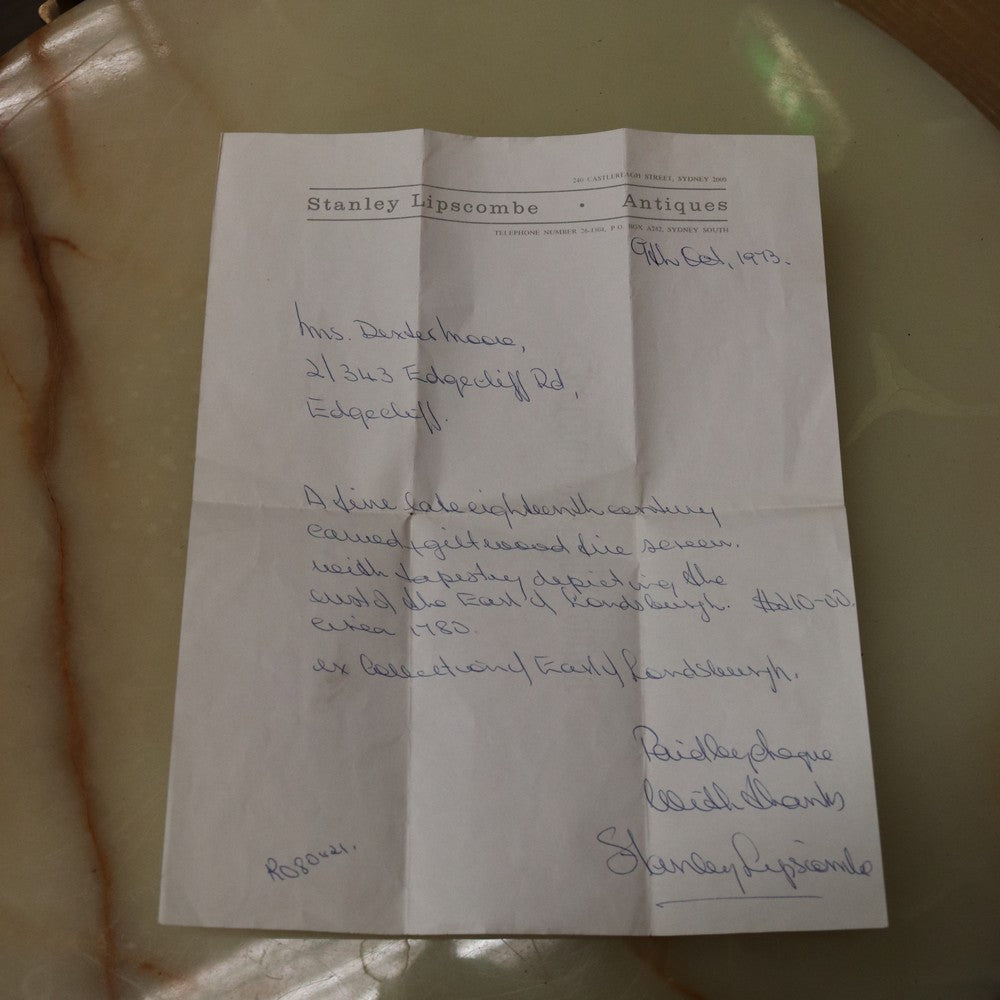 240 CASTLEREAGH STREET, SYDNEY 2000
Stanley Lipscombe • Antiques
TELEPHONE NUMBER 26-1304, P.O. BOX A282, SYDNEY SOUTH
9th Oct, 1973.
Mrs. Dexter Moore,
2/343 Edgecliff Rd,
Edgecliff.
A fine late eighteenth century
carved giltwood fire screen.
with tapestry depicting the
crest of the Earl of Londsburgh. $210-00.
Circa 1780.
ex Collection of Earl of Londsburgh.
Paid by cheque
With thanks
Stanley Lipscombe